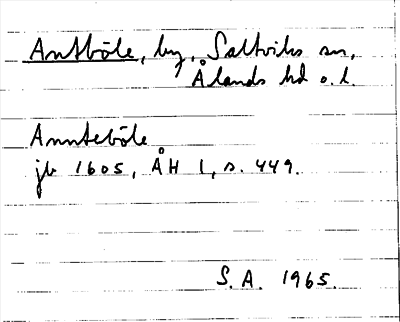 Antböle, by, Saltviks sn,
Ålands hd o. l.
Annteböle
jb 1605, ÅH 1, s. 449.
S.A. 1965.